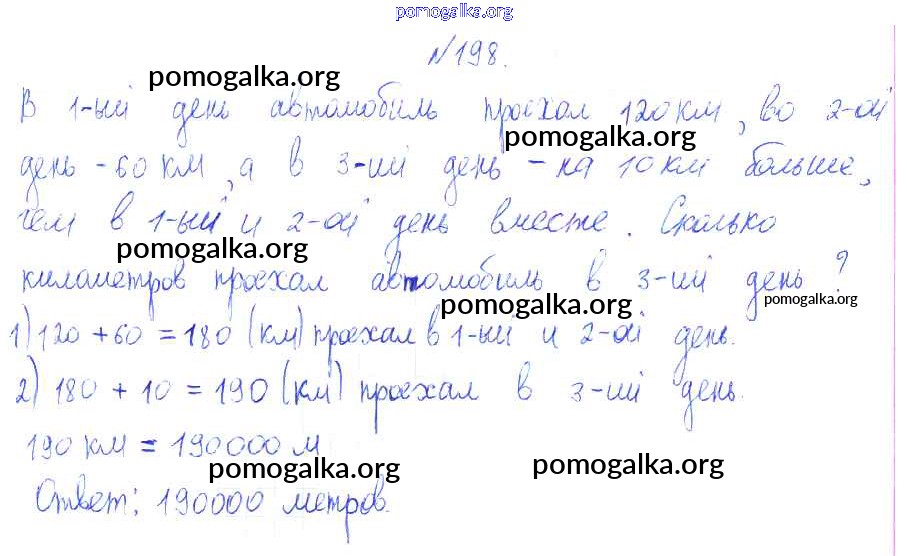 pomogalka.org
№198.
pomogalka.org
В 1-ый день автомобиль проехал 120 км, во 2-ой
pomogalka.org
день - 60 км, а в 3-ий день - на 10 км больше,
чем в 1-ый и 2-ой день вместе. Сколько
pomogalka.org
километров проехал автомобиль в 3-ий день?
pomogalka.org
pomogalka.org
1) 120 + 60 = 180 (км) проехал в 1-ый и 2-ой день.
2) 180 + 10 = 190 (км) проехал в 3-ий день.
190 км = 190000 м
pomogalka.org
pomogalka.org
Ответ: 190000 метров.